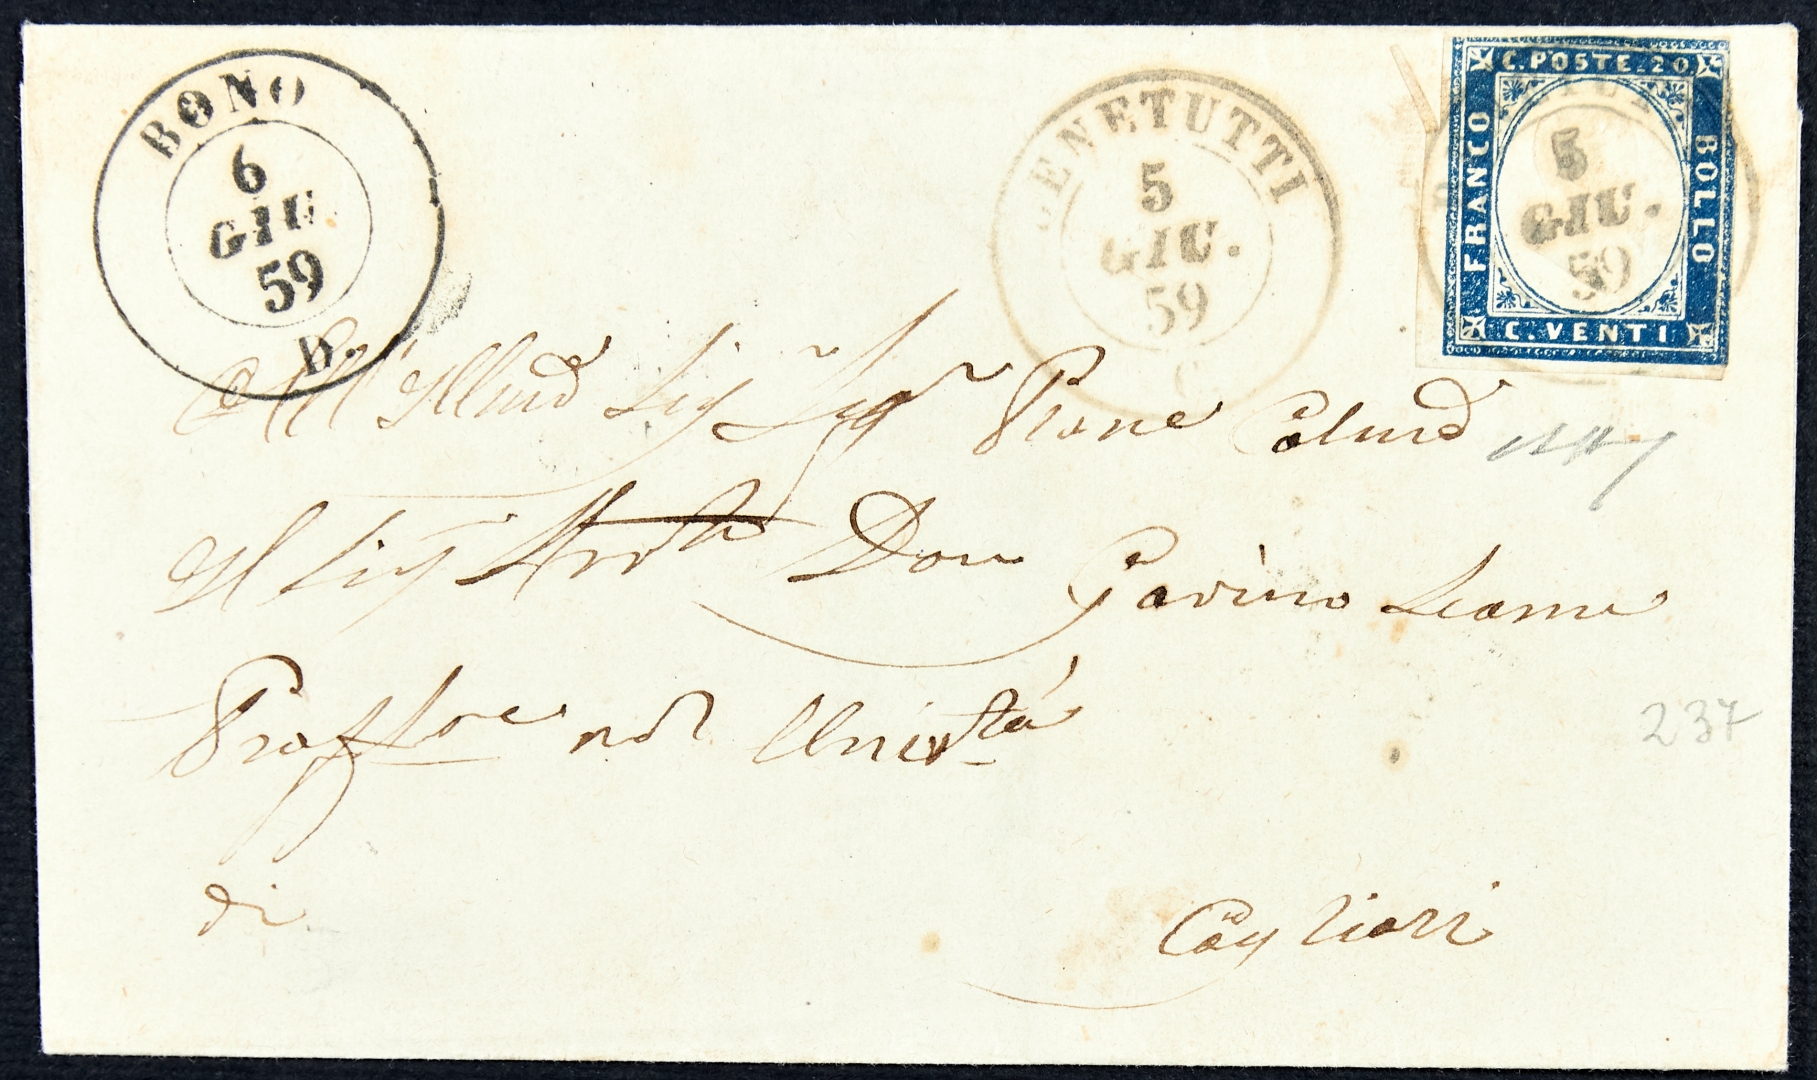 BONO
6
GIU
59
D.
BENETUTTI
5
GIU.
59
C
C. POSTE. 20
FRANCO
BOLLO
C. VENTI
5
GIU.
59
All' Illmo Sig Sig Prone Colmo
Il Sig Don Gavino
Proffsore nell Univtà
di Cagliari
237